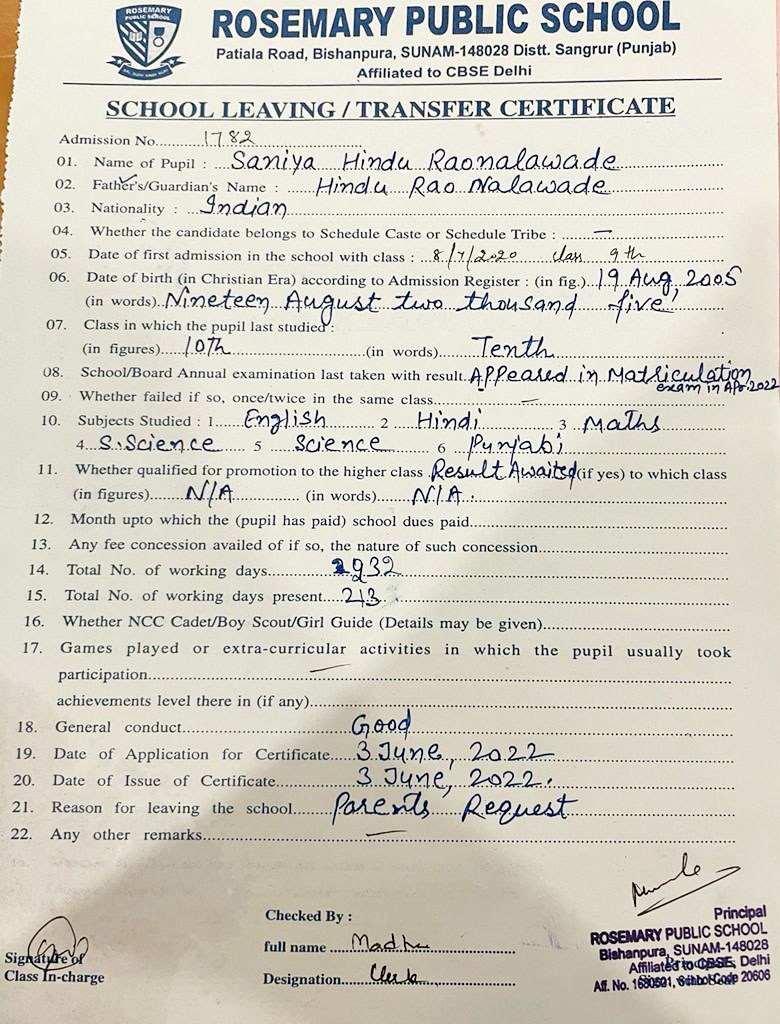 ROSEMARY
PUBLIC SCHOOL
ROSEMARY PUBLIC SCHOOL
Patiala Road, Bishanpura, SUNAM-148028 Distt. Sangrur (Punjab)
Affiliated to CBSE Delhi
SCHOOL LEAVING / TRANSFER CERTIFICATE
Admission No. 1782
01. Name of Pupil : Saniya Hindu Raonalawade
02. Father's/Guardian's Name : Hindu Rao Nalawade
03. Nationality : Indian
04. Whether the candidate belongs to Schedule Caste or Schedule Tribe : —
05. Date of first admission in the school with class : 8/7/2020 class 9th
06. Date of birth (in Christian Era) according to Admission Register : (in fig.) 19 Aug, 2005
(in words) Nineteen August two thousand five
07. Class in which the pupil last studied :
(in figures) 10th (in words) Tenth
08. School/Board Annual examination last taken with result. Appeared in Matriculation
exam in Apr.2022
09. Whether failed if so, once/twice in the same class —
10. Subjects Studied : 1 English 2 Hindi 3 Maths
4 S.Science 5 Science 6 Punjabi
11. Whether qualified for promotion to the higher class Result Awaited (if yes) to which class
(in figures) N/A (in words) N/A.
12. Month upto which the (pupil has paid) school dues paid
13. Any fee concession availed of if so, the nature of such concession
14. Total No. of working days 232
15. Total No. of working days present 213
16. Whether NCC Cadet/Boy Scout/Girl Guide (Details may be given)
17. Games played or extra-curricular activities in which the pupil usually took
participation —
achievements level there in (if any)
18. General conduct Good
19. Date of Application for Certificate 3 June, 2022
20. Date of Issue of Certificate 3 June, 2022.
21. Reason for leaving the school Parents Request
22. Any other remarks —
Checked By :
full name Madhu
Designation Clerk
Signature of
Class In-charge
Principal
ROSEMARY PUBLIC SCHOOL
Bishanpura, SUNAM-148028
Affiliated to CBSE, Delhi
Aff. No. School Code 20606